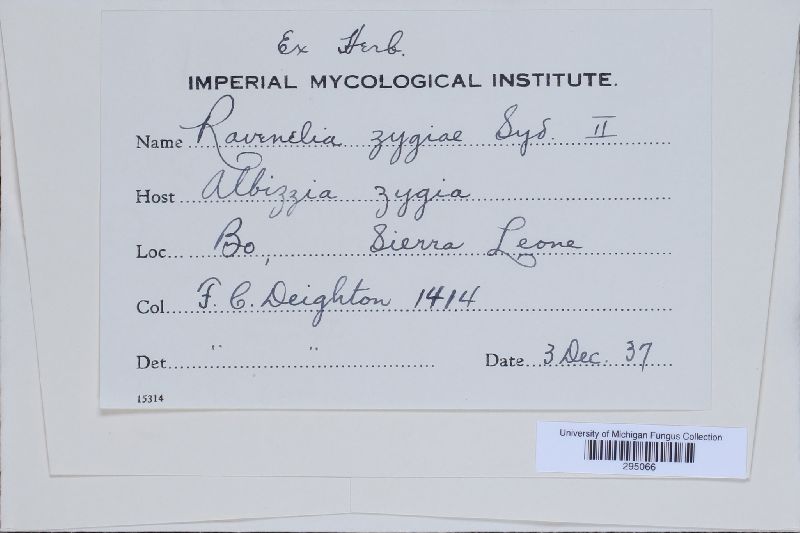 Ex Herb.
IMPERIAL MYCOLOGICAL INSTITUTE.
Name Ravenelia zygiae Syd. II
Host Albizzia zygia
Loc... Bo, Sierra Leone
Col. F. C. Deighton 1414
Det. " " Date 3 Dec. 37
15314
University of Michigan Fungus Collection
295066